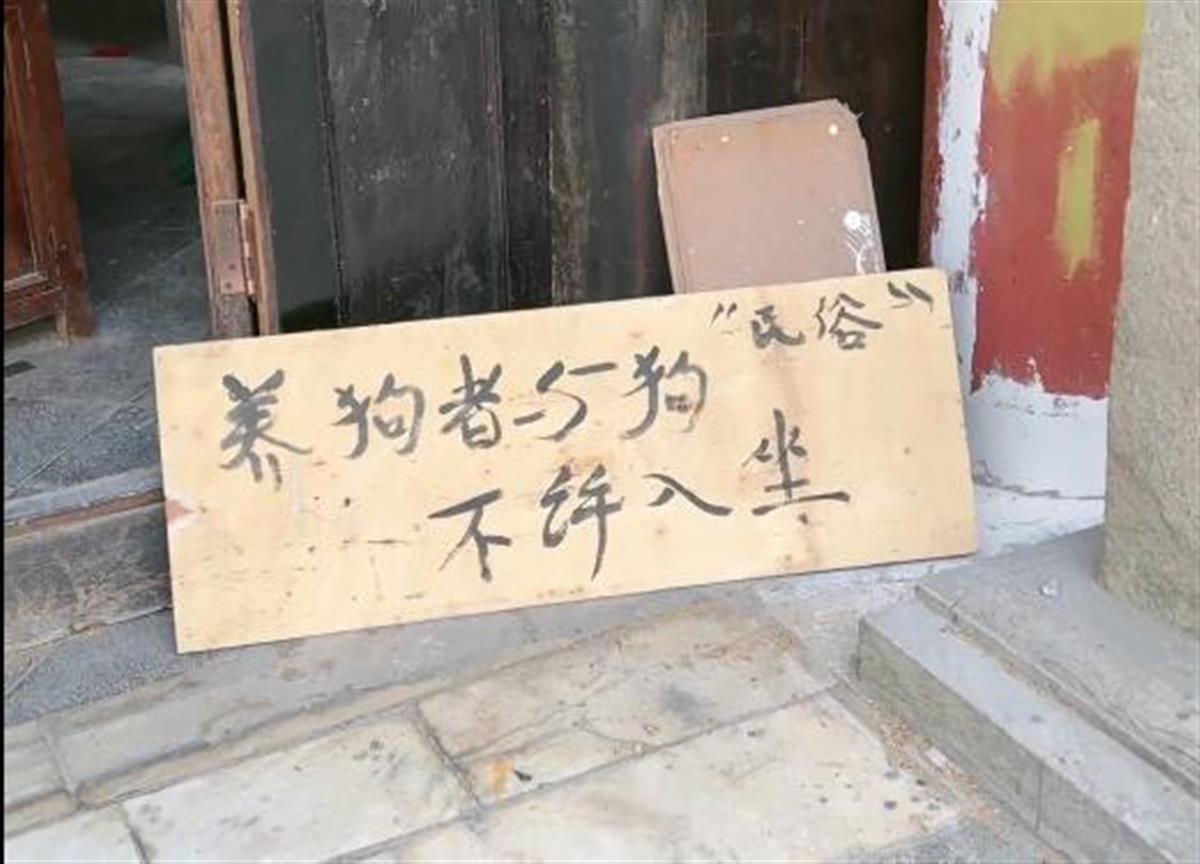 养狗者与狗 “民俗”
不许入坐